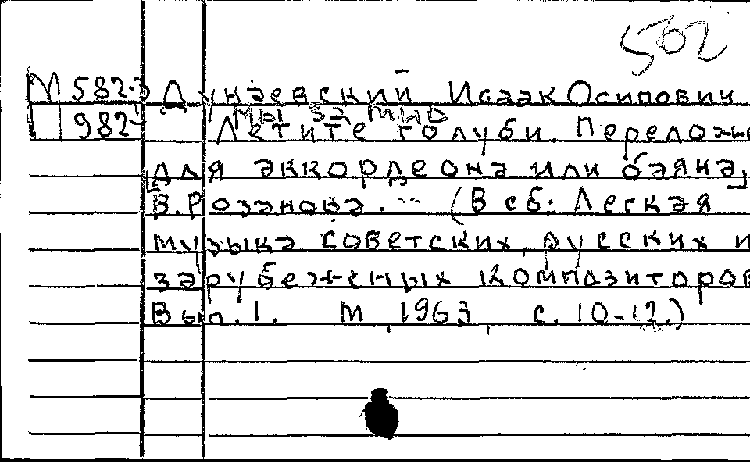 562
М 582-3 Дунаевский Исаак Осипович
мы за мир
982 Летите голуби. Перелож
для аккордеона или баяна
В. Розанова. -- (В сб: Легкая
музыка советских, русских и
зарубежных композиторов
Вып. 1. М, 1963, с. 10-12.)